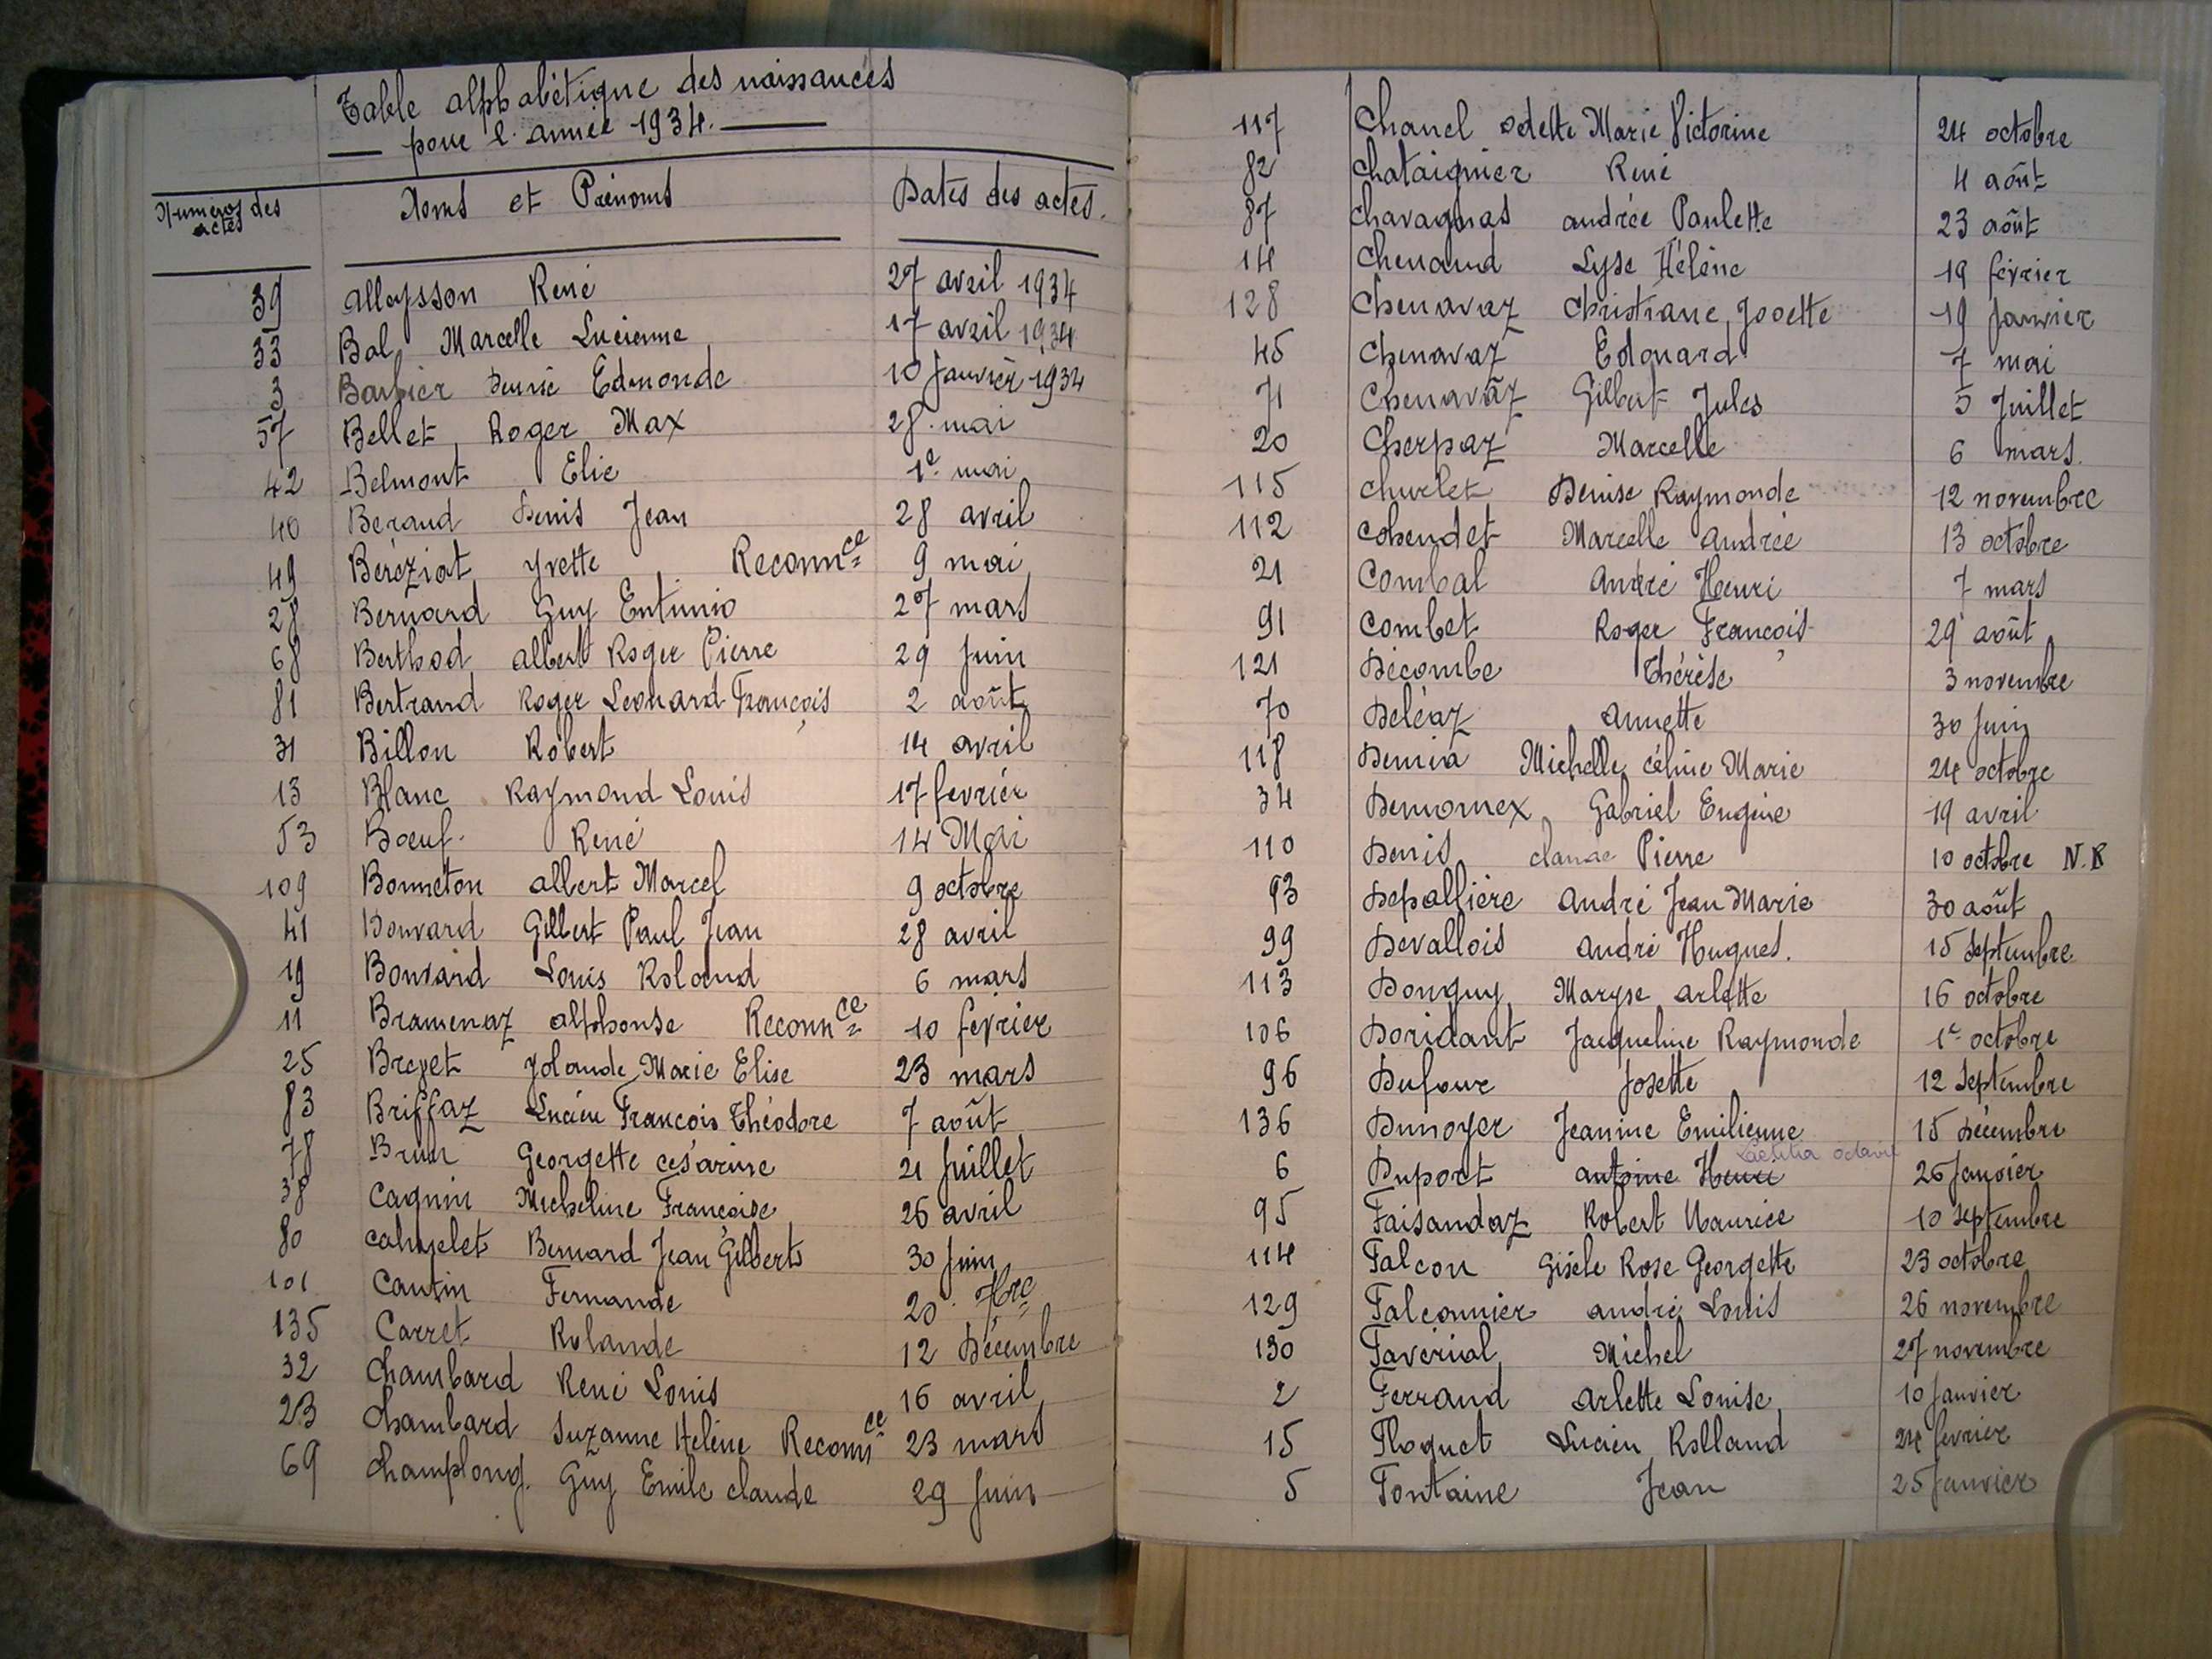 Table alphabétique des naissances
pour l'année 1934.
Numéros des actes Noms et Prénoms Dates des actes.
39 Alleysson René 27 avril 1934
33 Bal Marcelle Lucienne 17 avril 1934
3 Barbier Denise Edmonde 10 Janvier 1934
57 Bellet Roger Max 28 mai
42 Belmont Elie 1e mai
40 Beraud Denis Jean 28 avril
49 Béréziat Yvette Reconnce 9 mai
28 Bernard Guy 27 mars
68 Berthod Albert Roger Pierre 29 Juin
81 Bertrand Roger Leonard François 2 août
31 Billon Robert 14 avril
13 Blanc Raymond Louis 17 fevrier
53 Boeuf. René 14 Mai
109 Bonneton Albert Marcel 9 octobre
41 Bonvard Gilbert Paul Jean 28 avril
19 Bonvard Louis Roland 6 mars
11 Bramenaz Alphonse Reconnce 10 fevrier
25 Breyet Yolande Marie Elise 23 mars
83 Briffaz Lucien François Théodore 7 août
78 Brun Georgette Césarine 21 Juillet
38 Cagnin Micheline Françoise 26 avril
80 Bernard Jean Gilbert 30 Juin
101 Cantin Fernande 20 7bre
135 Carret Rolande 12 Décembre
32 Chambard René Louis 16 avril
23 Chambard Suzanne Helène Reconnce 23 mars
69 Champlong. Guy Emile Claude 29 Juin
117 Chanel Odette Marie Victorine 24 octobre
82 Chataignier René 4 août
87 Chavagnas Andrée Paulette 23 août
14 Chenaud Lyse Hélène 19 février
128 Chenavaz Christiane Josette 19 Janvier
45 Chenavaz Edouard 7 mai
71 Chenavaz Gilbert Jules 5 Juillet
20 Cherpaz Marcelle 6 mars.
115 Chuvelet Denise Raymonde 12 novembre
112 Cohendet Marcelle Andrée 13 octobre
21 Combal André Henri 7 mars
91 Combet Roger François 29 août
121 Décombe Thérèse 3 novembre
70 Deléaz Annette 30 Juin
118 Demia Michelle Céline Marie 24 octobre
34 Demornex Gabriel Eugène 19 avril
110 Denis Claude Pierre 10 octobre N.B
93 Depallière André Jean Marie 30 août
99 Devallois André Hugues. 15 Septembre
113 Donguy Maryse Arlette 16 octobre
106 Doridant Jacqueline Raymonde 1e octobre
96 Dufour Josette 12 Septembre
136 Dunoyer Jeanine Emilienne 15 Décembre
Laetitia Octavie
6 Duport Antoine Henri 26 Janvier
95 Faisandaz Robert Maurice 10 Septembre
114 Falcon Gisèle Rose Georgette 23 octobre
129 Falconnier André Louis 26 novembre
130 Favérial Michel 27 novembre
2 Ferrand Arlette Louise 10 Janvier
15 Floquet Lucien Rolland 24 fevrier
5 Fontaine Jean 25 Janvier